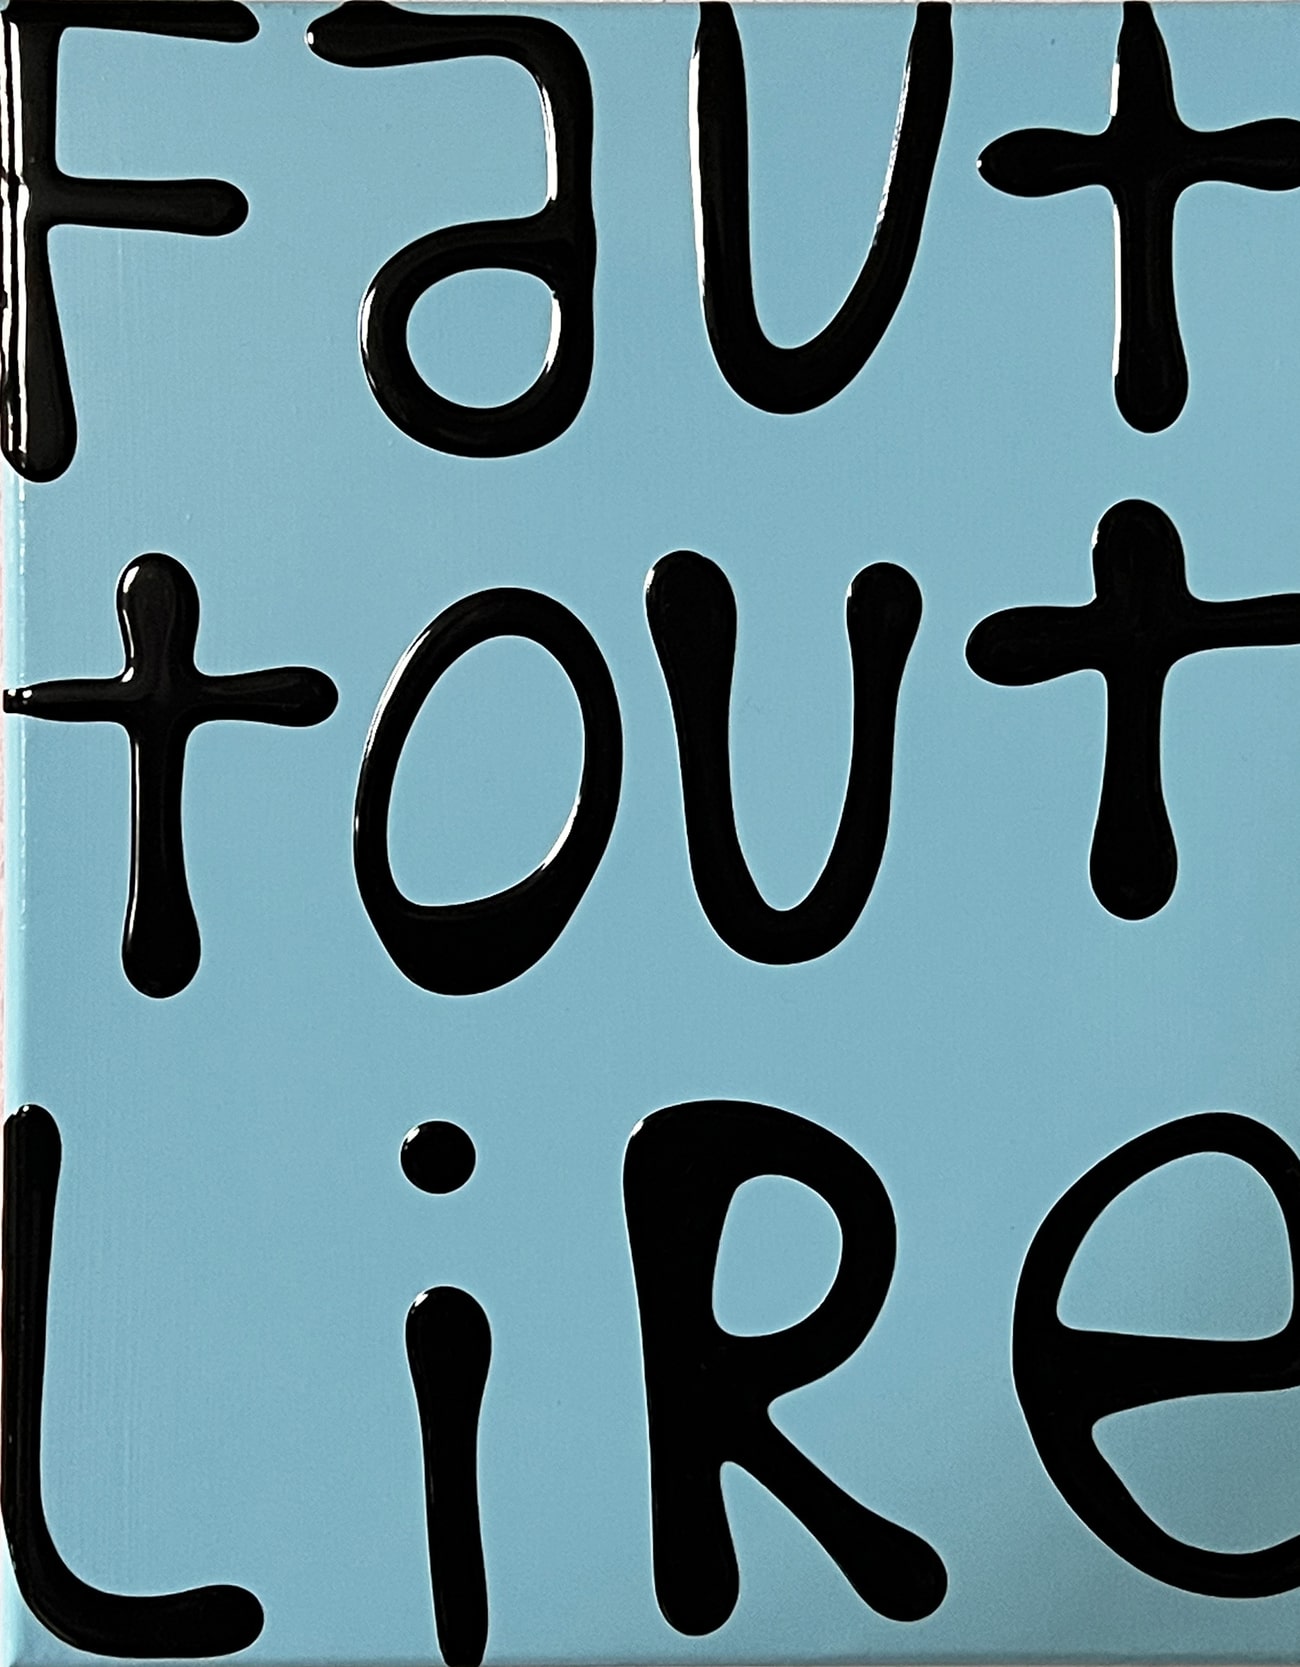 Faut
tout
LiRe